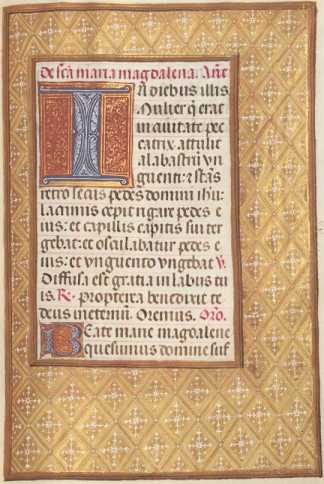 De scã maria magdalena. Añt
IN diebus illis
Mulier q̃ erat
in ciuitate pec
catrix attulit
alabastrũ vn
guenti: et stãs
retro secus pedes domini ihũ
lacrimis cepit rigare pedes e
ius: et capillis capitis sui ter
gebat: et osculabatur pedes e
ius: et vnguento vngebat V.
Diffusa est gratia in labiis tu
is. Re. propterea benedixit te
deus in eternũ. Oremus. Orõ.
Beate marie magdalene
quesumus domine suf